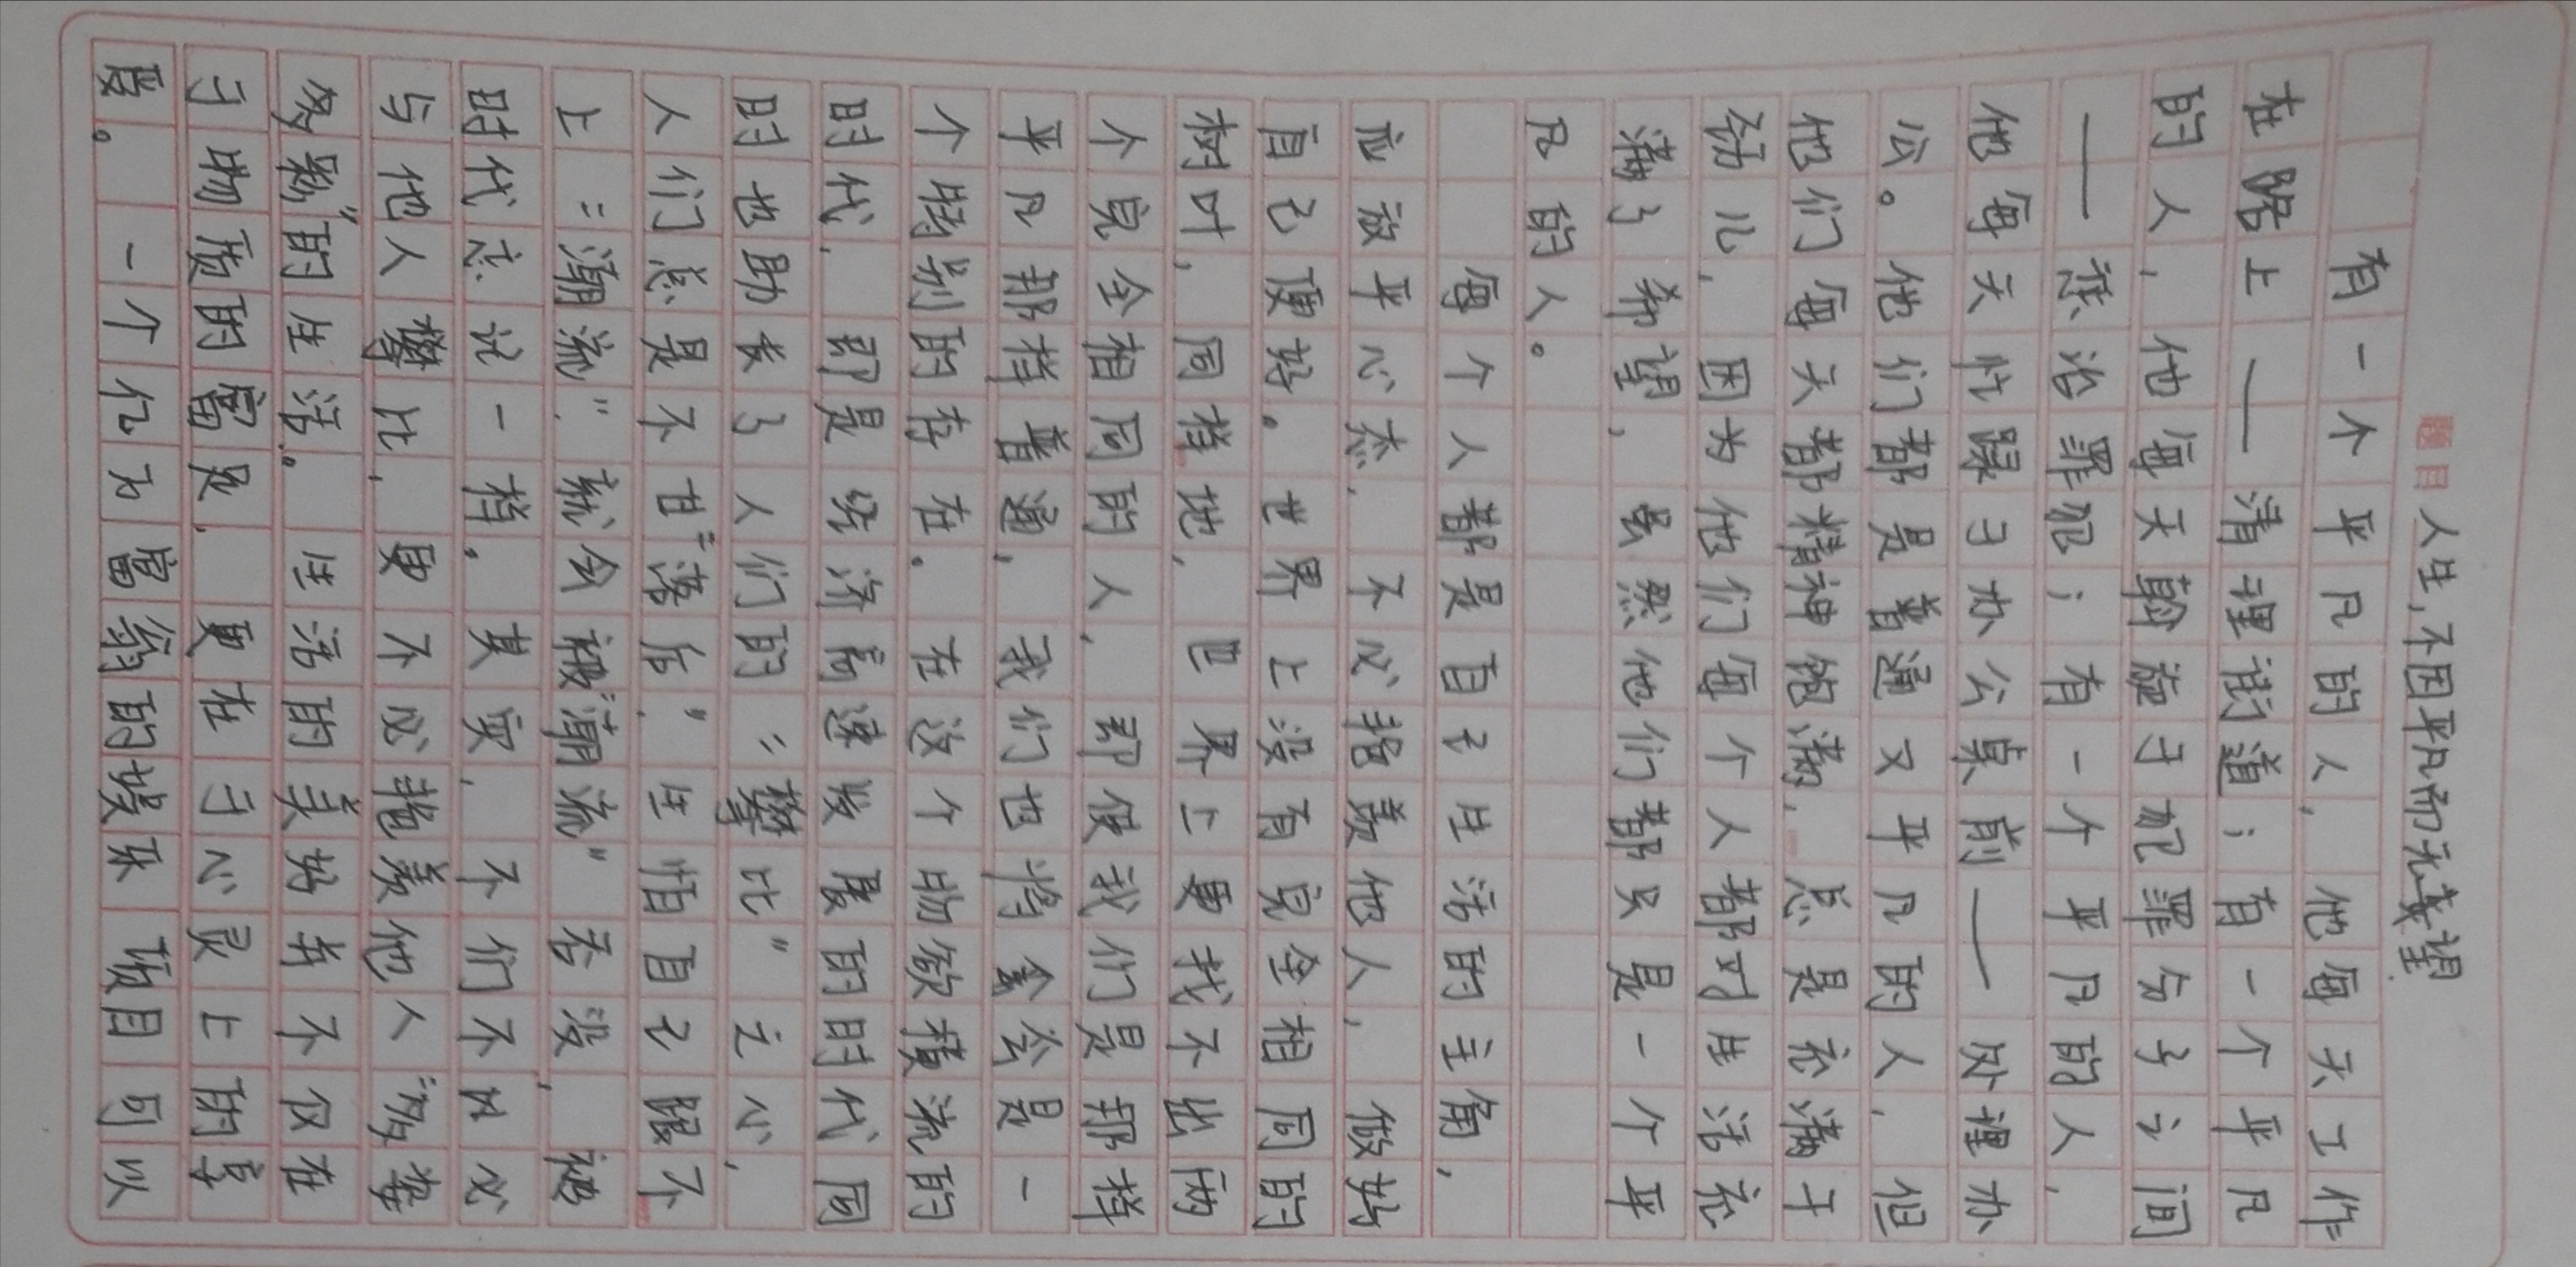 题目 人生,不因平凡而无羡望
有一个平凡的人,他每天工作
在路上——清理街道;有一个平凡
的人,他每天斡旋于犯罪分子之间
——惩治罪犯;有一个平凡的人,
他每天忙碌于办公桌前——处理办
公。他们都是普通又平凡的人,但
他们每天都精神饱满,总是充满干
劲儿,因为他们每个人都对生活充
满了希望,虽然他们都只是一个平
凡的人。
每个人都是自己生活的主角,
应放平心态,不必羡慕他人,做好
自己便好。世界上没有完全相同的
树叶,同样地,世界上更找不出两
个完全相同的人,即使我们是那样
平凡那样普通,我们也会是一
个特别的存在。在这个物欲横流的
时代,即是经济高速发展的时代同
时也带来了人们的"攀比"之心,
人们总是不甘"落后",生怕自己跟不
上"潮流",会被"潮流"吞没,被
时代忘记一样。其实,人们大可不必
与他人攀比,更不必羡慕他人"多姿
多彩"的生活。生活的美好并不仅在
于物质的富足,更在于心灵上的享
受。一个亿万富翁的娱乐项目可以